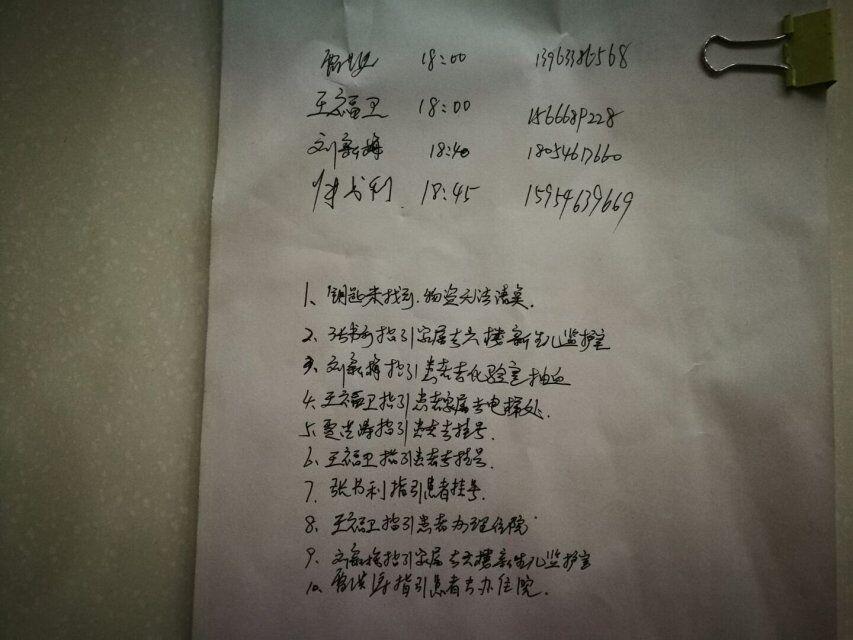 18:00 13963386568
王福卫 18:00 1566689228
刘新梅 18:40 18054617660
张书利 18:45 15954639669
1、钥匙未找到.物资无法清点.
2、张书利指引家属去六楼新生儿监护室
3、刘新梅指引患者去化验室抽血
4、王福卫指引患者家属去电梯处.
5、指引患者去挂号.
6、王福卫指引患者去挂号.
7、张书利指引患者挂号.
8、王福卫指引患者办理住院
9、刘新梅指引家属去六楼新生儿监护室
10、指引患者去办住院.